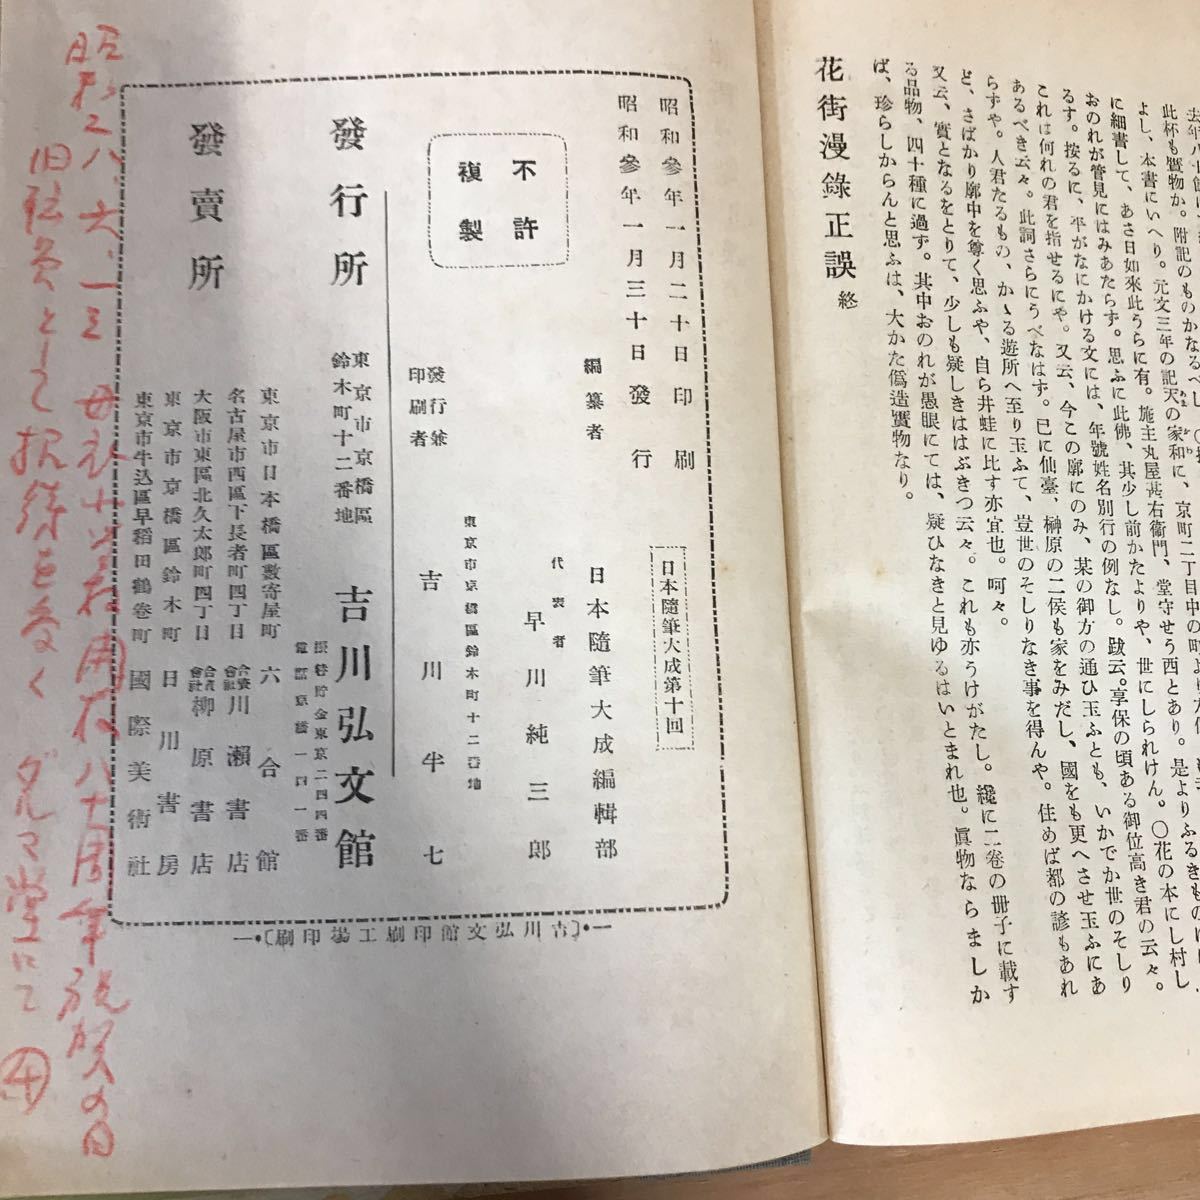 此杯も贋物か。附記のものかなるべし。
よし、本書にいへり。元文三年の記天の家和に、京町二丁目中の町より
に細書して、あさ日如來此うらに有。施主丸屋甚右衞門、堂守せう西とあり。是よりふるきものは
おのれが管見にはみあたらず。思ふに此佛、其少し前かたよりや、世にしられけん。〇花の本にし村し
るす。按るに、平がなにかける文には、年號姓名別行の例なし。跋云。享保の頃ある御位高き君の云々。
これは何れの君を指せるにや。又云、今この廓にのみ、某の御方の通ひ玉ふとも、いかでか世のそしり
あるべき云々。此詞さらにうべなはず。已に仙臺、榊原の二侯も家をみだし、國をも更へさせ玉ふにあ
らずや。人君たるもの、かゝる遊所へ至り玉ふて、豈世のそしりなき事を得んや。住めば都の諺もあれ
ど、さばかり廓中を尊く思ふや、自ら井蛙に比す亦宜也。呵々。
又云、實となるをとりて、少しも疑しきははぶきつ云々。これも亦うけがたし。纔に二卷の冊子に載す
る品物、四十種に過ず。其中おのれが愚眼にては、疑ひなきと見ゆるはいとまれ也。眞物ならましか
ば、珍らしからんと思ふは、大かた僞造贋物なり。
花街漫錄正誤 終
日本隨筆大成第十回
昭和參年一月二十日印刷
昭和參年一月三十日發行
不許
複製
編纂者 日本隨筆大成編輯部
代表者 早川純三郎
東京市京橋區鈴木町十二番地
發行兼
印刷者 吉川半七
發行所
東京市京橋區
鈴木町十二番地
吉川弘文館
振替貯金東京二四四番
電話京橋一四一番
發賣所
東京市日本橋區數寄屋町 六合館
名古屋市西區下長者町四丁目 合資會社川瀨書店
大阪市東區北久太郎町四丁目 合資會社柳原書店
東京市京橋區鈴木町 日用書房
東京市牛込區早稻田鶴卷町 國際美術社
—•〔吉川弘文館印刷工場印刷〕•—
昭和二八、六、一三 母衣小學校開校八十周年祝賀の日
旧職員として招待を受く ダルマ堂にて